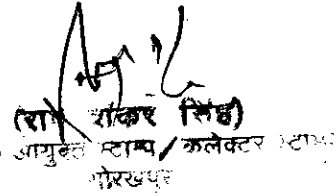 (राम शंकर सिंह)
आयुक्त स्टाम्प / कलेक्टर स्टाम्प
गोरखपुर